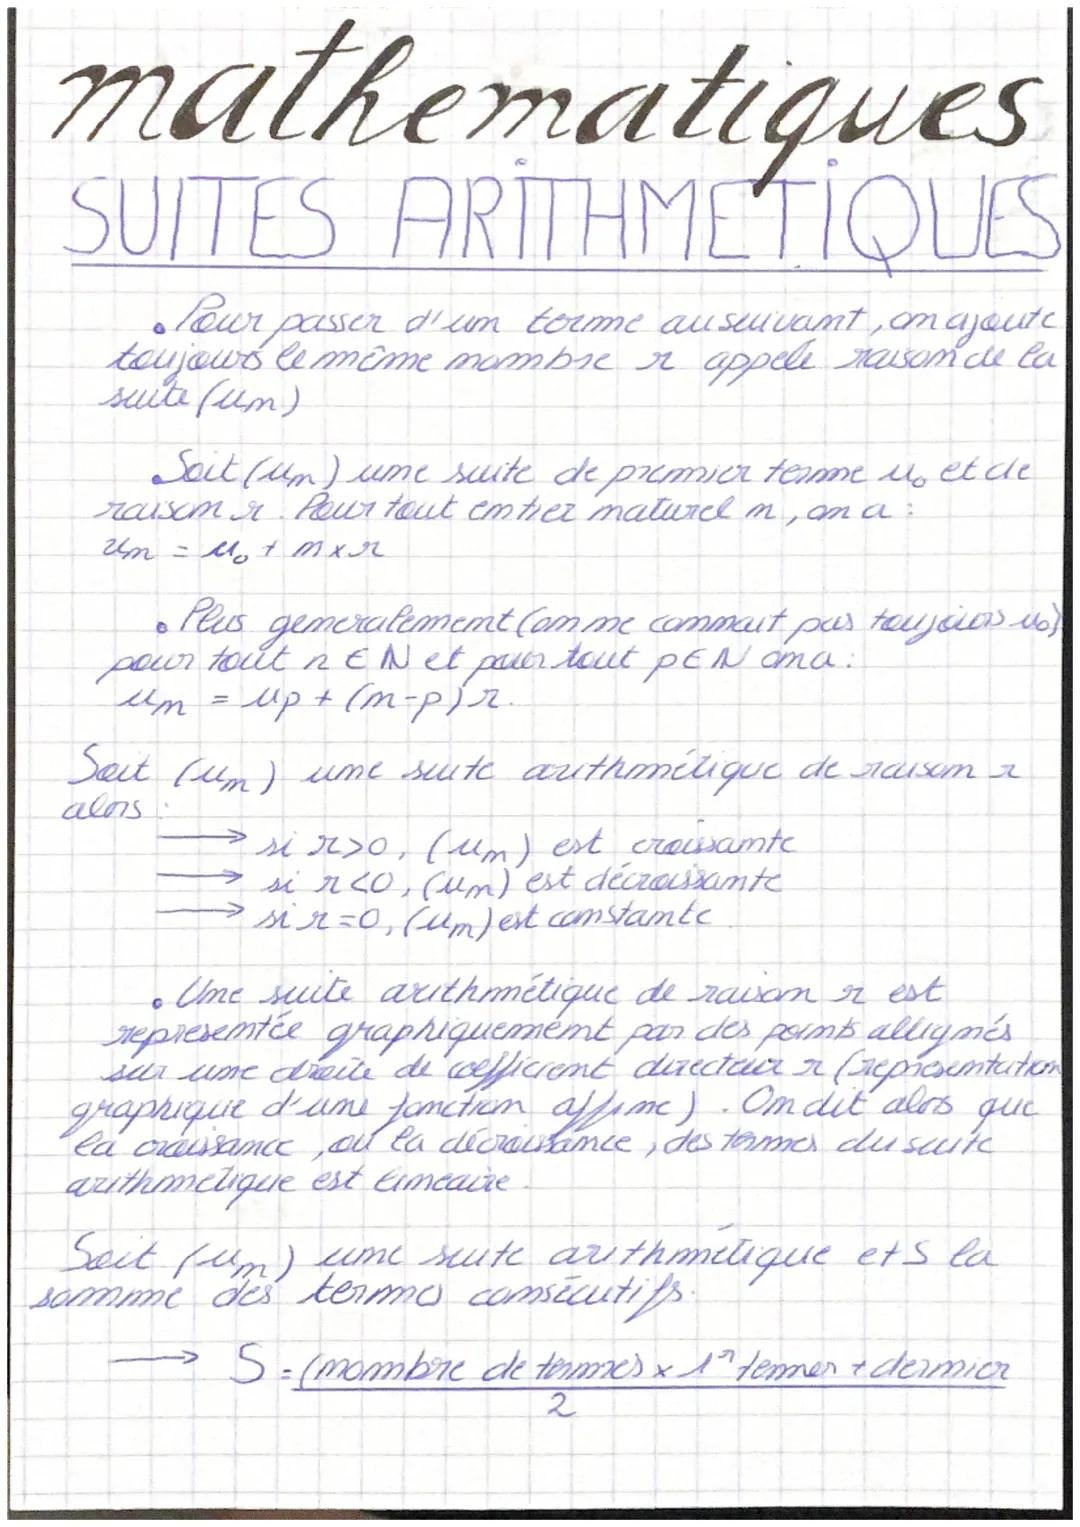 mathematiques
SUITES ARITHMETIQUES
• Pour passer d'un terme au suivant, on ajoute
toujours le même nombre r appelé raison de la
suite (un)
• Soit (un) une suite de premier terme u₀ et de
raison r. Pour tout entier naturel n, on a :
un = u₀ + n x r
• Plus generalement (on ne connait pas toujours u₀)
pour tout n ∈ N et pour tout p ∈ N on a :
un = up + (n-p) r.
Soit (un) une suite arithmétique de raison r
alors :
→ si r>0, (un) est croissante
→ si r<0, (un) est décroissante
→ si r=0, (un) est constante
• Une suite arithmétique de raison r est
representée graphiquement par des points allignés
sur une droite de coefficient directeur r (representation
graphique d'une fonction affine). On dit alors que
la croissance, ou la décroissance, des termes du suite
arithmetique est lineaire.
Soit (un) une suite arithmétique et S la
somme des termes consécutifs.
→ S = (nombre de termes x 1er termes + dernier
2